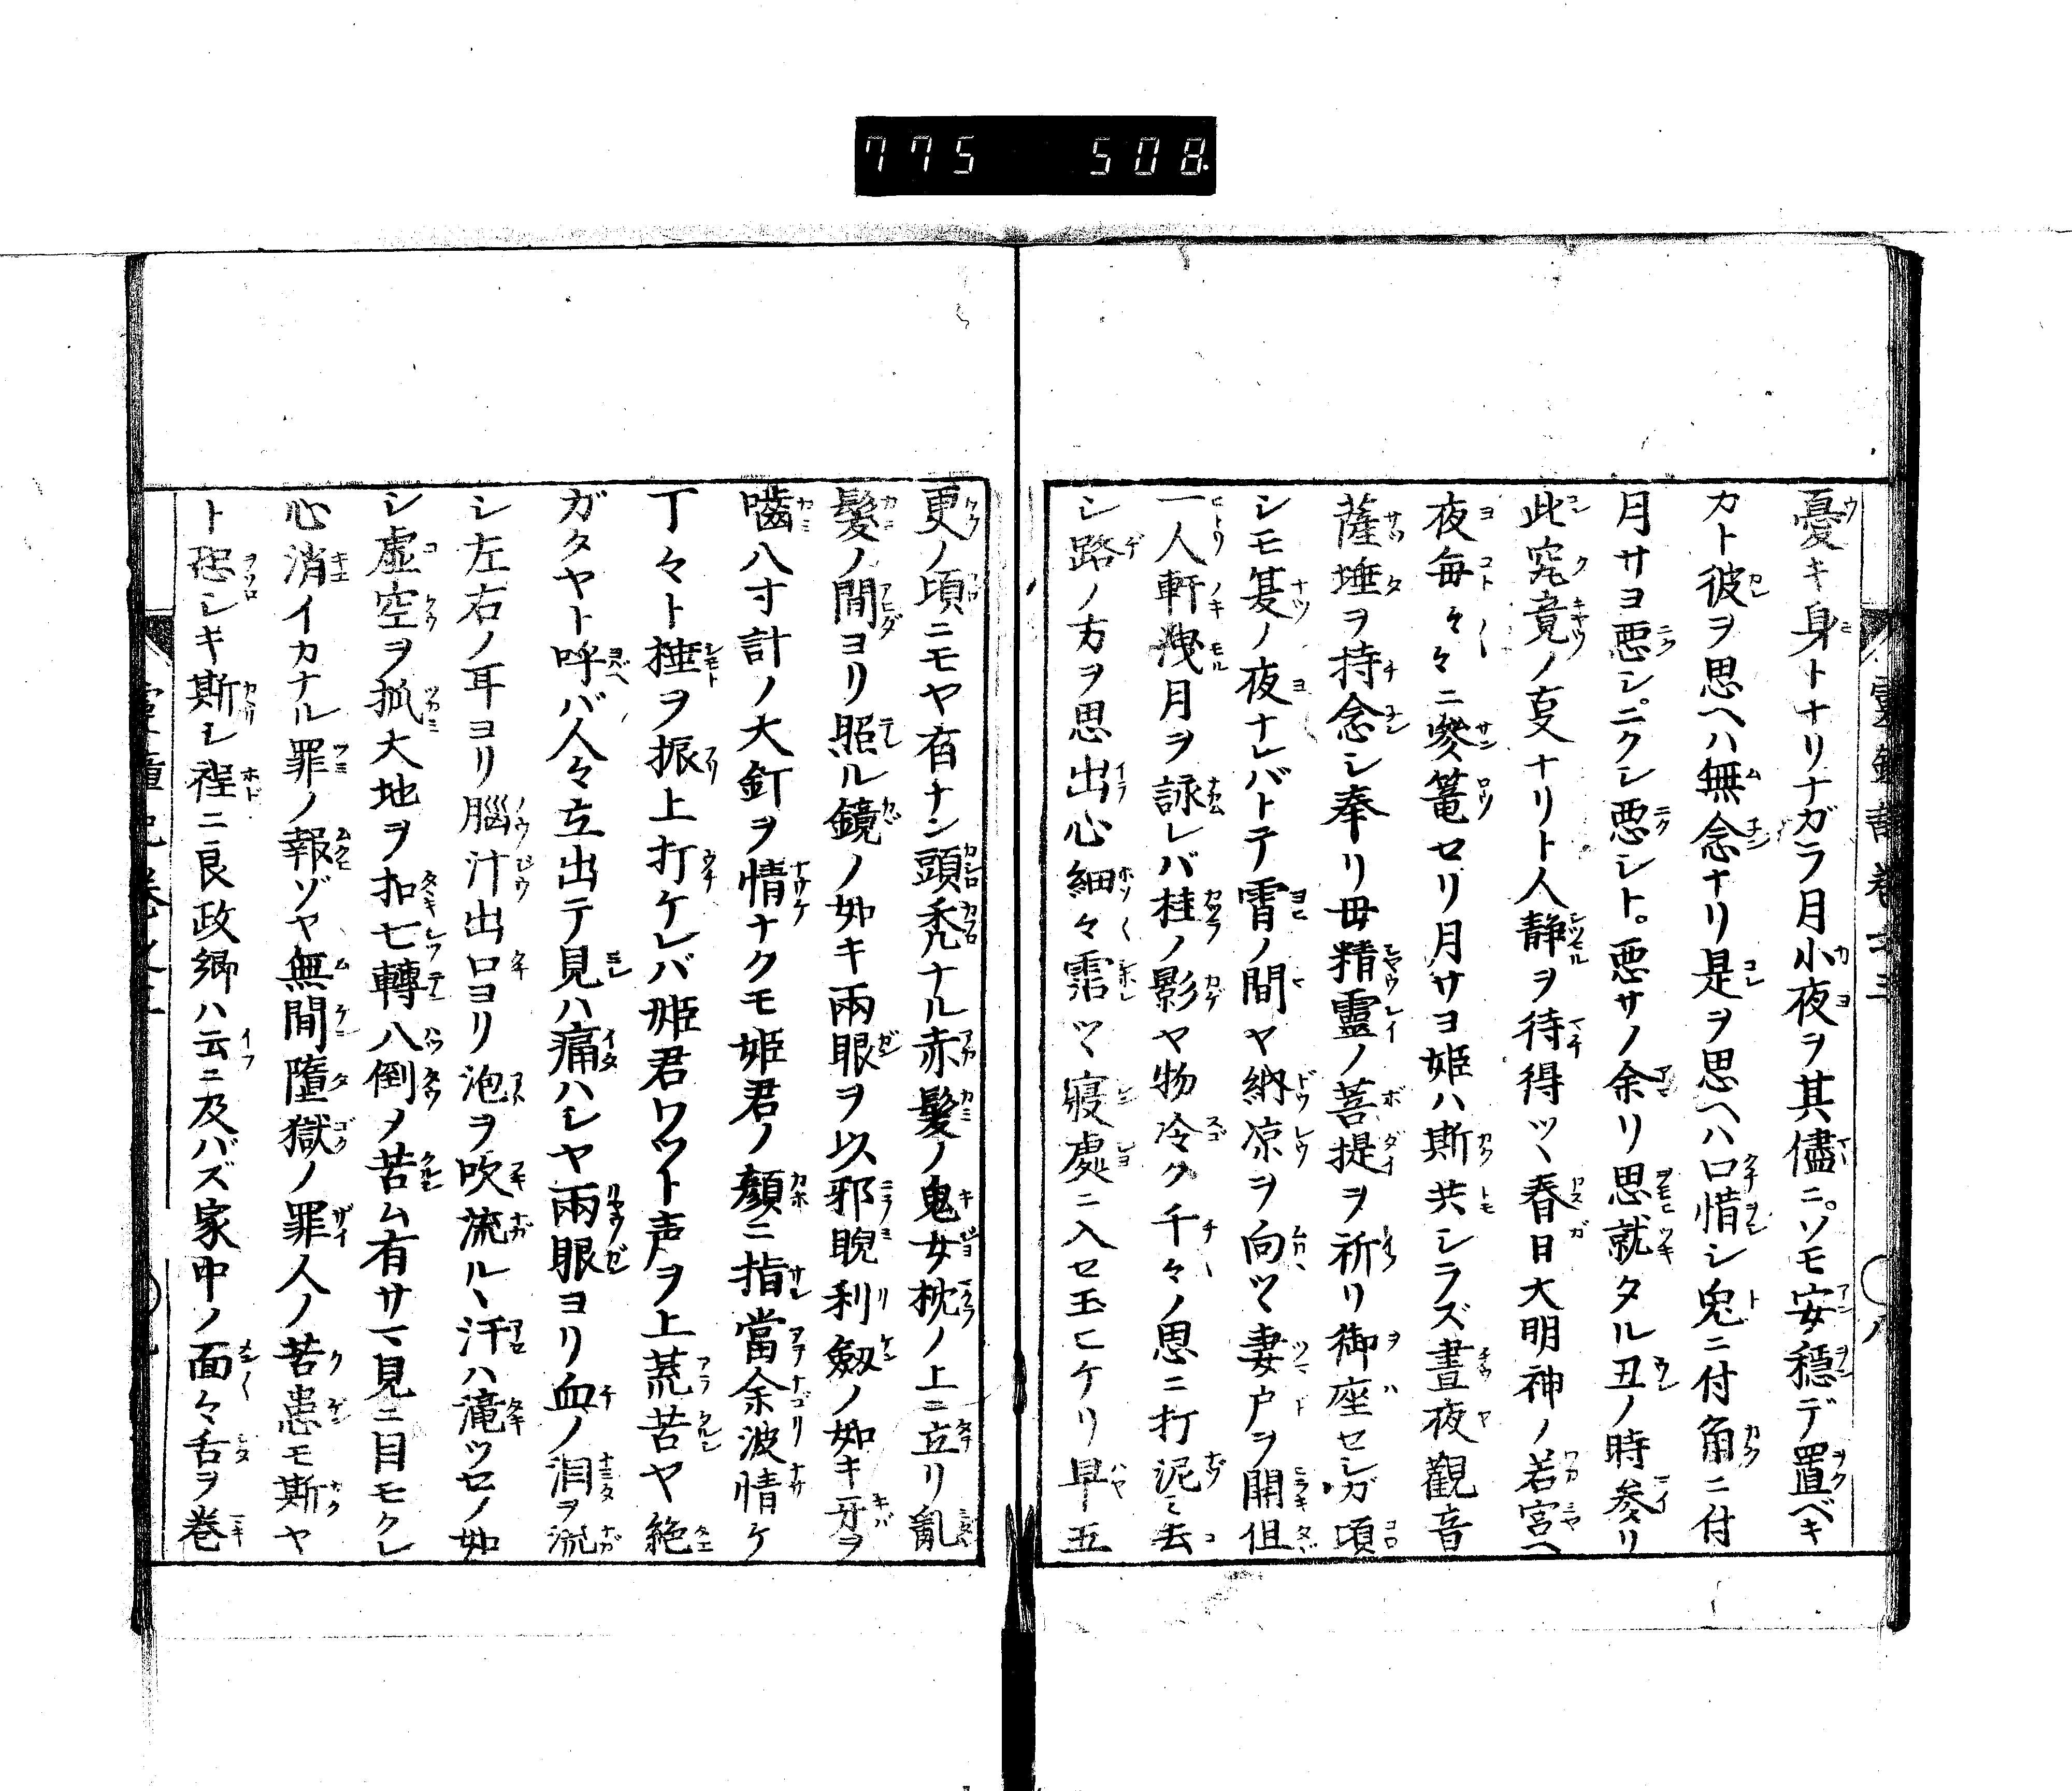 775 508
憂キ身トナリナガラ月小夜ヲ其儘ニソモ安穏デ置ベキ
カト彼ヲ思ヘハ無念ナリ是ヲ思ヘハ口惜シ兎ニ付角ニ付
月サヨ悪シニクシ悪シト。悪サノ余リ思就タル丑ノ時参リ
此究竟ノ叓ナリト人静ヲ待得ツヽ春日大明神ノ若宮ヘ
夜毎々々ニ參篭セリ月サヨ姫ハ斯共シラズ晝夜觀音
薩埵ヲ持念シ奉リ毋精靈ノ菩提ヲ祈リ御座セシガ頃
シモ夏ノ夜ナレバトテ霄ノ間ヤ納凉ヲ向ツヽ妻戸ヲ開伹
一人軒洩月ヲ詠レバ桂ノ影ヤ物冷ク千々ノ思ニ打泥ミ去
シ路ノ方ヲ思出心細々霑ツヽ寢處ニ入セ玉ヒケリ早五
更ノ頃ニモヤ有ナン頭秃ナル赤髮ノ鬼女枕ノ上ニ立リ亂
髮ノ間ヨリ照ル鏡ノ如キ兩眼ヲ以邪睨利劔ノ如キ牙ヲ
嚙八寸計ノ大釘ヲ情ナクモ姫君ノ顔ニ指當余波情ケ
丁々ト捶ヲ振上打ケレバ姫君ワツト声ヲ上荒苦ヤ絶
ガタヤト呼バ人々立出テ見ハ痛ハシヤ兩眼ヨリ血ノ泪ヲ流
シ左右ノ耳ヨリ腦汁出口ヨリ泡ヲ吹流ルヽ汗ハ滝ツセノ如
シ虚空ヲ抓大地ヲ扣七轉八倒メ苦ム有サマ見ニ目モクレ
心消イカナル罪ノ報ゾヤ無間墮獄ノ罪人ノ苦患モ斯ヤ
ト恐シキ斯シ程ニ良政卿ハ云ニ及バズ家中ノ面々舌ヲ巻